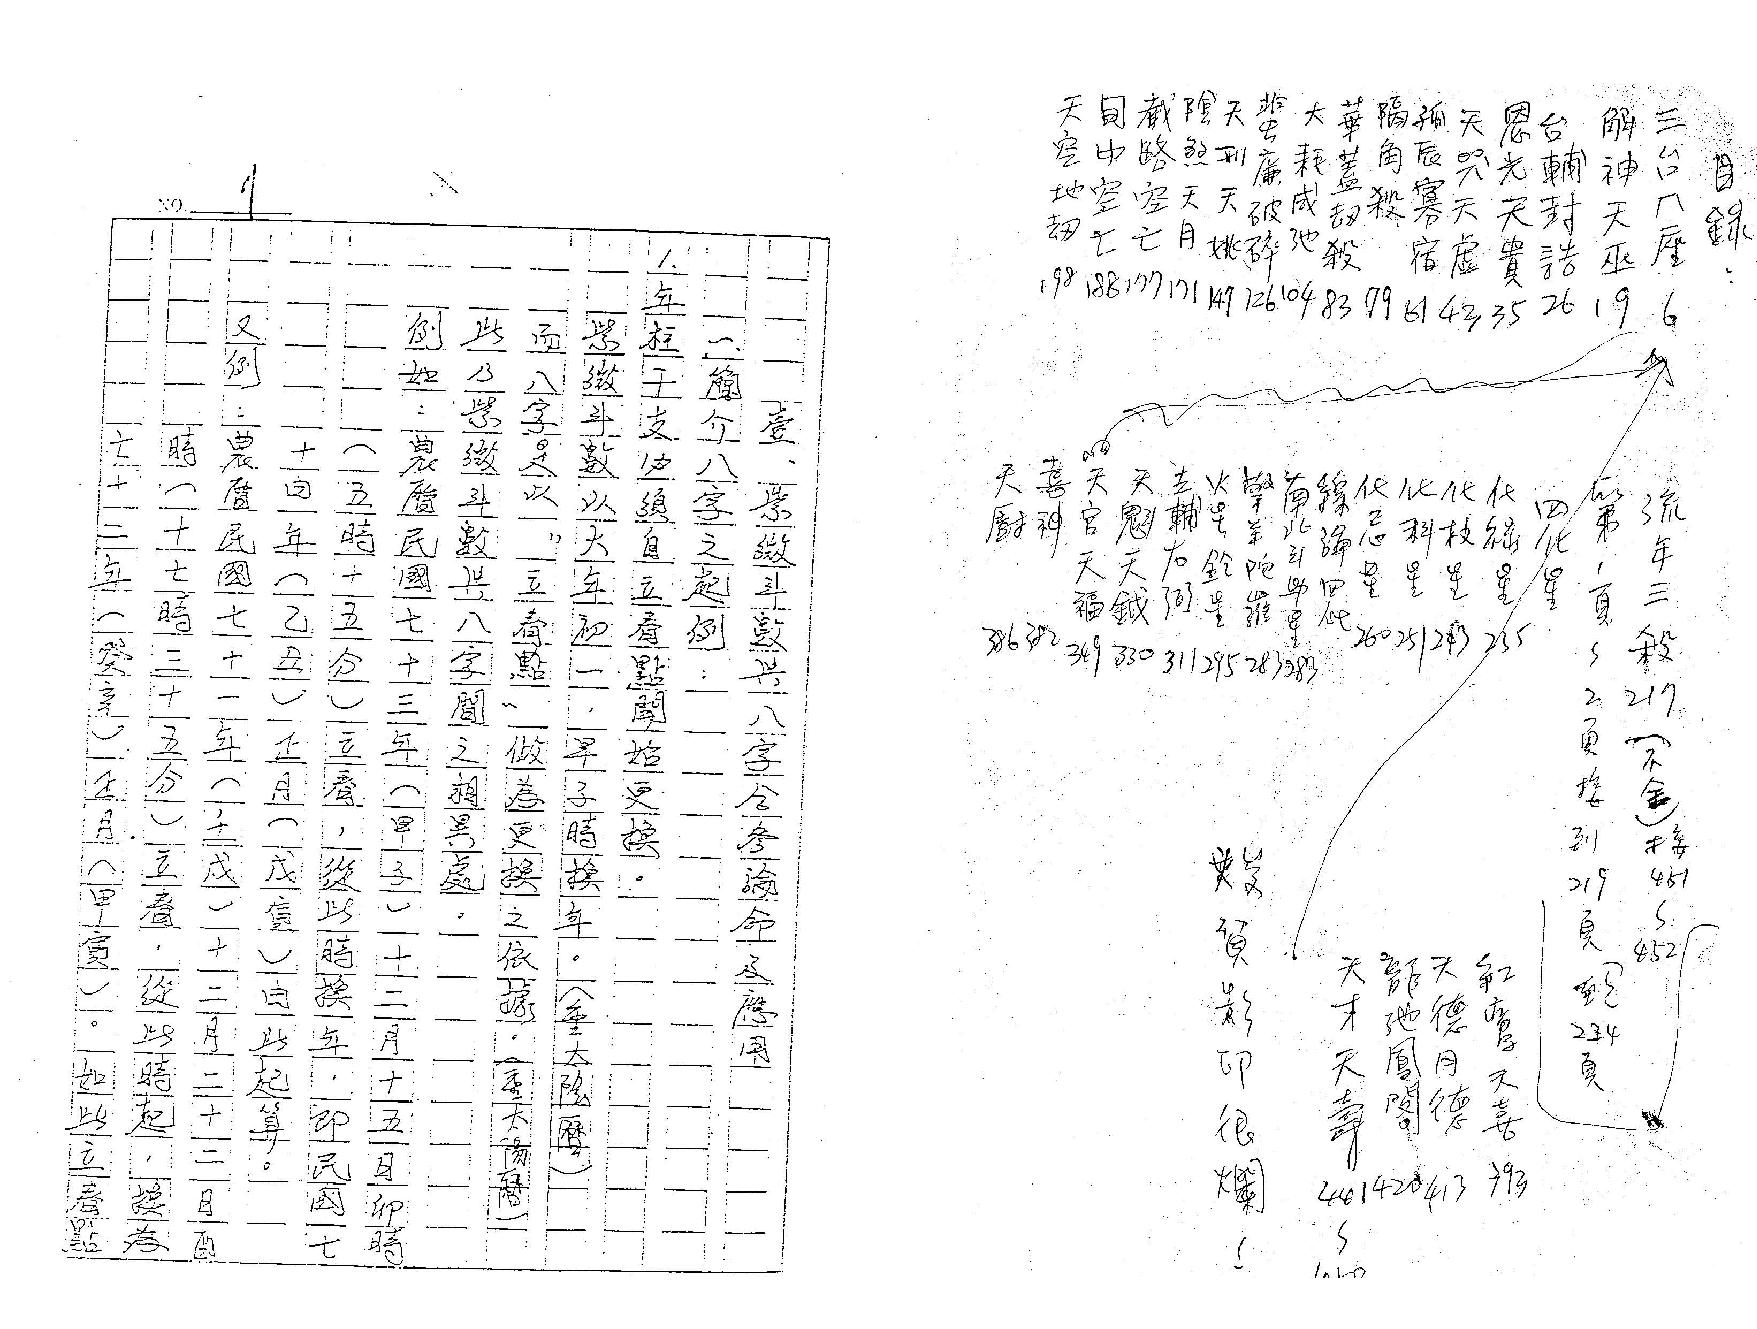 目錄：
三台八座 6
解神天巫 19
台輔封誥 26
恩光天貴 35
天哭天虛 43
孤辰寡宿 61
隔角殺 79
華蓋劫殺 83
大耗咸池 104
蜚廉破碎 126
天刑天姚 147
陰煞天月 171
截路空亡 177
旬中空亡 188
天空地劫 198
流年三殺 217（不全）接451~452
第1頁~2頁接到219頁 234頁
四化星
化祿星 235
化权星 243
化科星 251
化忌星 260
綜論四化
南北斗助星 283
擎羊陀羅 283
火星鈴星 295
左輔右弼 311
天魁天鉞 330
天官天福 349
喜神 382
天廚 386
紅鸞天喜 393
天德月德 413
龍池鳳閣 428
天才天壽 441~
影印很爛！
NO. 1
壹、紫微斗數與八字合參論命之應用
一、簡介八字之起例：
1. 年柱干支必須自立春點開始更換。
紫微斗數以大年初一，早子時換年。（重太陰曆）
而八字是以〝立春點〞做為更換之依據。（重太陽曆）
此乃紫微斗數與八字間之相異處。
例如：農曆民國七十三年（甲子）十二月十五日卯時
（五時十五分）立春，從此時換年．即民國七
十四年（乙丑）正月（戊寅）由此起算。
又例：農曆民國七十一年（壬戌）十二月二十二日酉
時（十七時三十五分）立春．從此時起．換為
七十二年（癸亥）正月（甲寅）。如此立春點